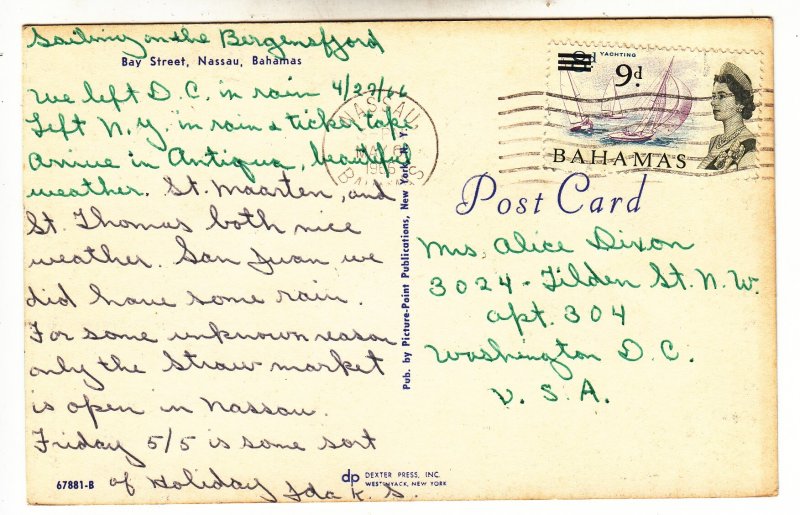 Sailing on the Bergensfjord
Bay Street, Nassau, Bahamas
We left D.C. in rain 4/27/66
Left N.Y. in rain & ticker tape
Arrive in Antigua, beautiful
weather. St. Maarten, and
St. Thomas both nice
weather. San Juan we
did have some rain.
For some unknown reason
only the Straw market
is open in Nassau.
Friday 5/5 is some sort
of Holiday Ida K. S.
67881-B
dp DEXTER PRESS, INC.
WEST NYACK, NEW YORK
Pub. by Picture-Point Publications, New York, N.Y.
NASSAU
YACHTING
9d.
BAHAMAS
Post Card
Mrs. Alice Dixon
3024 - Tilden St. N.W.
Apt. 304
Washington D.C.
U.S.A.